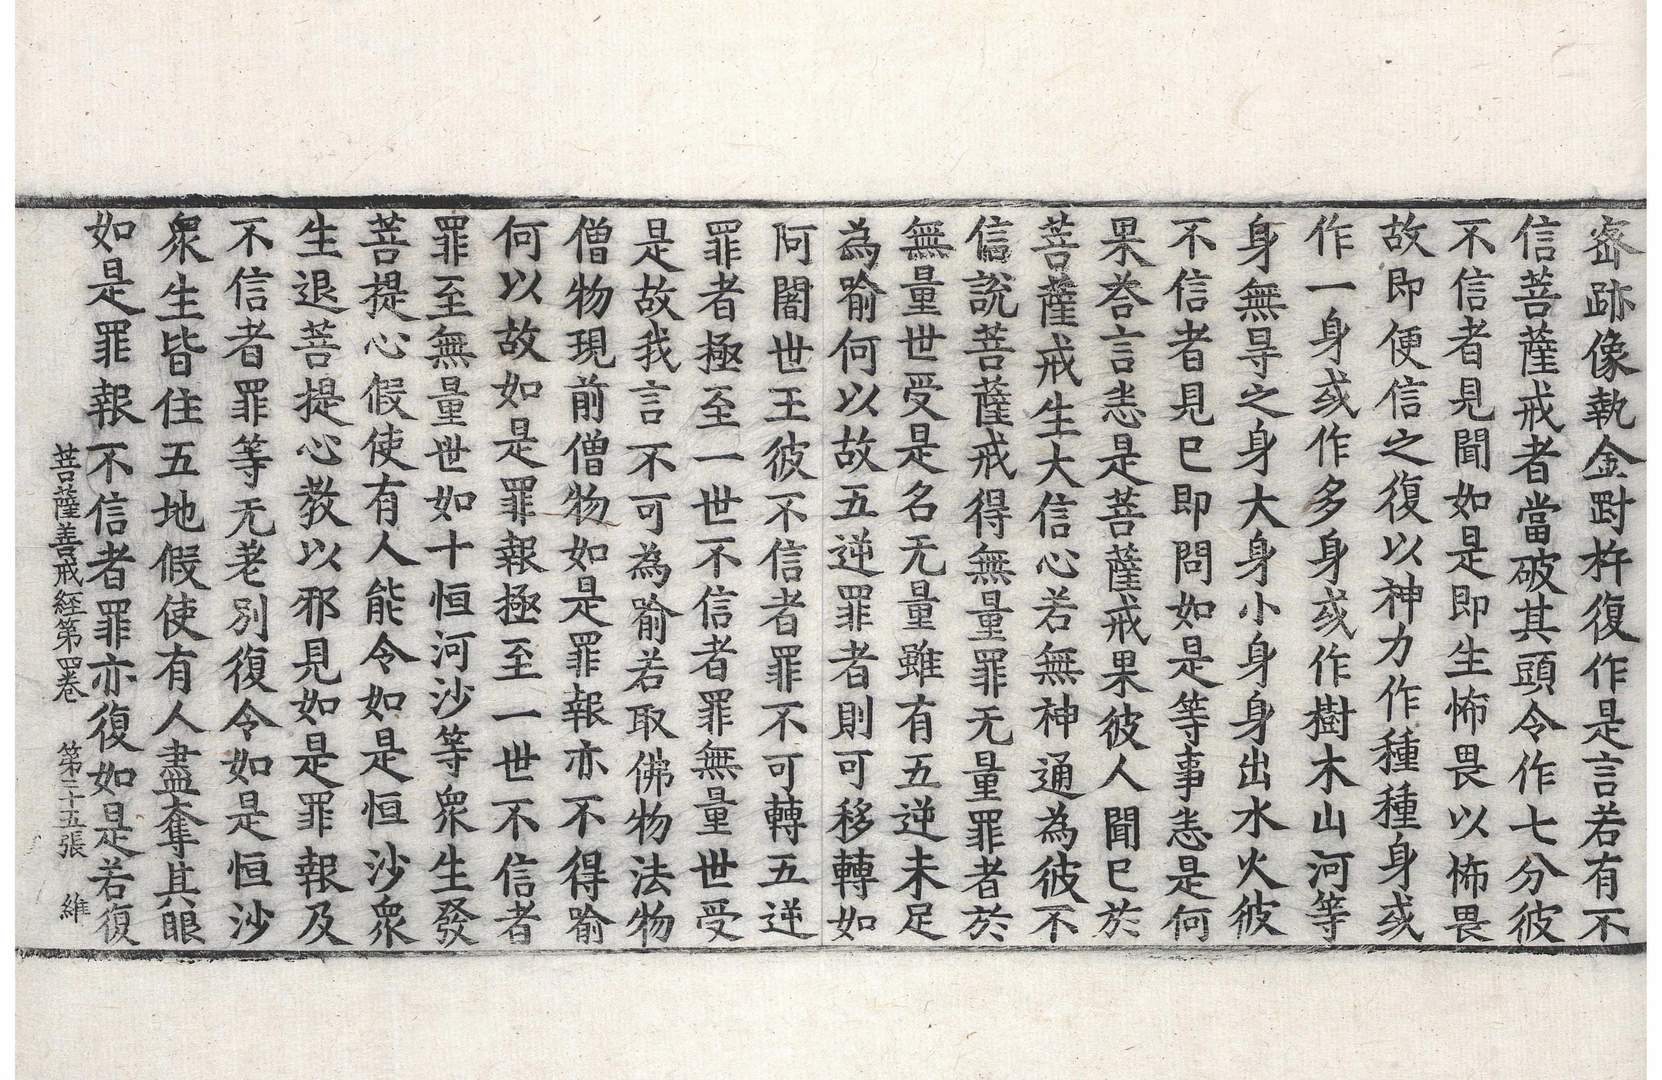 密跡像執金㓰杵復作是言若有不
信菩薩戒者當破其頭令作七分彼
不信者見聞如是即生怖畏以怖畏
故即便信之復以神力作種種身或
作一身或作多身或作樹木山河等
身無㝵之身大身小身身出水火彼
不信者見已即問如是等事悉是何
果荅言悉是菩薩戒果彼人聞已於
菩薩戒生大信心若無神通為彼不
信說菩薩戒得無量罪无量罪者於
無量世受是名无量雖有五逆未足
為喻何以故五逆罪者則可移轉如
阿闍世王彼不信者罪不可轉五逆
罪者極至一世不信者罪無量世受
是故我言不可為喻若取佛物法物
僧物現前僧物如是罪報亦不得喻
何以故如是罪報極至一世不信者
罪至無量世如十恒河沙等衆生發
菩提心假使有人能令如是恒沙衆
生退菩提心教以邪見如是罪報及
不信者罪等无差別復令如是恒沙
衆生皆住五地假使有人盡奪其眼
如是罪報不信者罪亦復如是若復
菩薩善戒經第四卷 第二十五張 維